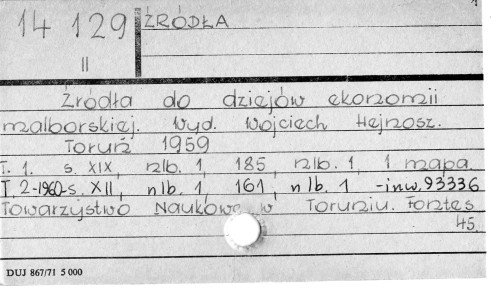 14 129 ŹRÓDŁA
II
Źródła do dziejów ekonomii
malborskiej. Wyd. Wojciech Hejnosz.
Toruń 1959
T. 1. s. XIX, nlb. 1, 185, nlb. 1, 1 mapa.
T. 2-1960-s. XII, nlb. 1 161, nlb. 1 -inw. 93336
Towarzystwo Naukowe w Toruniu. Fontes
45.
DUJ 867/71 5 000